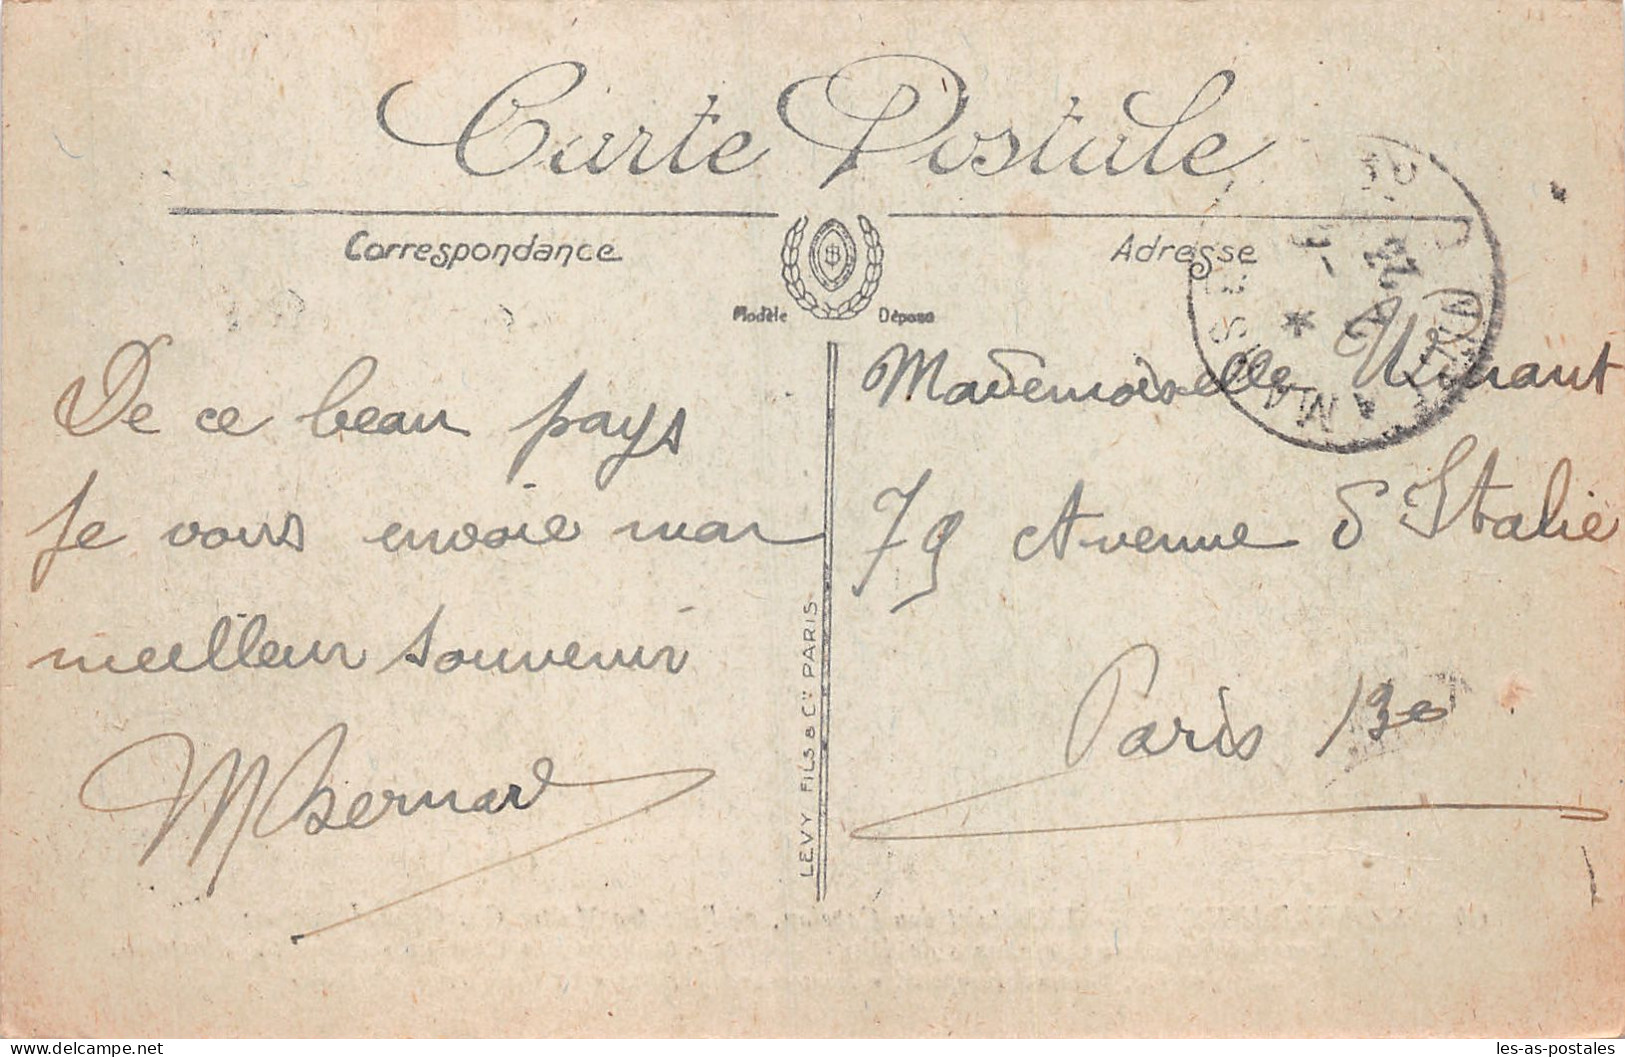 Carte Postale
Correspondance
Adresse
Modèle Déposé
De ce beau pays
Je vous envoie mon
meilleur souvenir
MBernard
LEVY FILS & Cie PARIS
Mademoiselle
79 Avenue d'Italie
Paris 13e
les-as-postales
https://www.delcampe.net